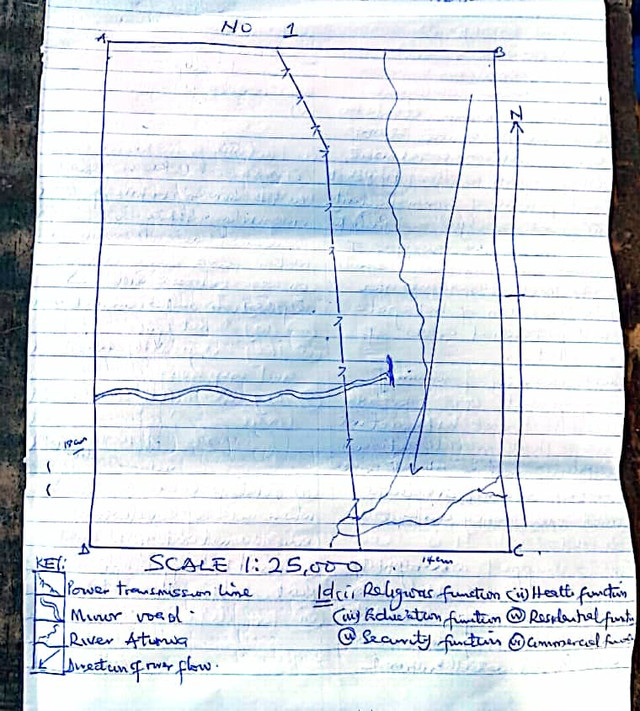 NO 1
A B
N
18cm
D C
SCALE 1:25,000 14cm
KEY:
Power transmission Line
Minor road
River Atuwa
Direction of river flow.
1d(i) Religious function (ii) Health function
(iii) Education function (iv) Residential
(v) Security function (vi) Commercial